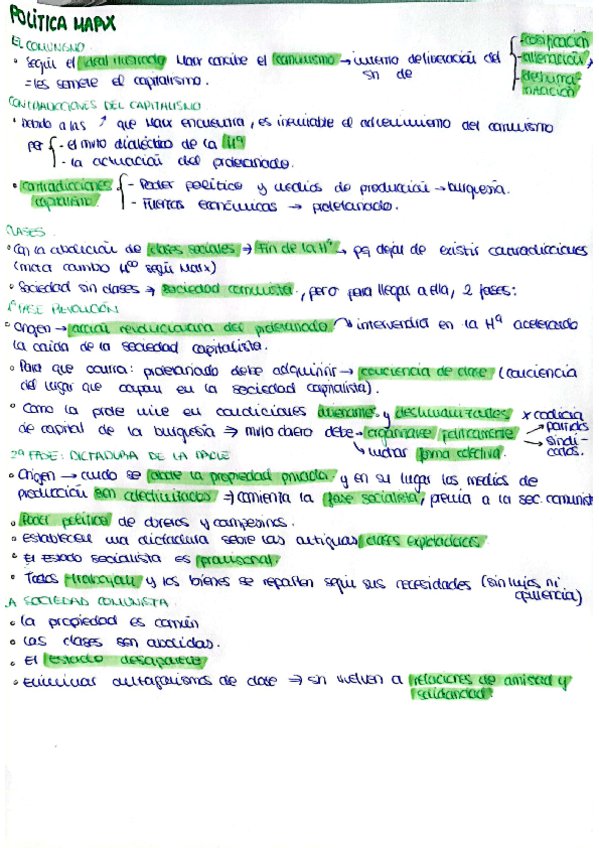 POLÍTICA MARX
EL COMUNISMO
• Según el ideal ilustrado Marx concibe el comunismo → intento deliberación del { - cosificación
= les somete el capitalismo. sn de - alienación,
- deshuma-
nización
CONTRADICCIONES DEL CAPITALISMO
• Debido a las ↗ que Marx encuentra, es inevitable el advenimiento del comunismo
per { - el mvto dialéctico de la Hª
- la actuación del proletariado.
• contradicciones { - Poder político y medios de producción → burguesía.
capitalismo - Fuerzas económicas → proletariado.
CLASES
• Con la abolición de clases sociales → Fin de la Hª → pq dejar de existir contradicciones
(motor cambio Hco según Marx)
• Sociedad sin clases → sociedad comunista, pero para llegar a ella, 2 fases:
1ª FASE REVOLUCIÓN
• Origen → acción revolucionaria del proletariado → intervendría en la Hª acelerando
la caída de la sociedad capitalista.
• Para que ocurra: proletariado debe adquirir → conciencia de clase (conciencia
del lugar que ocupan en la sociedad capitalista).
• Como la prole vive en condiciones alienantes y deshumanizadas x codicia
de capital de la burguesía ⇒ mvto obrero debe → organizarse políticamente → partidos
→ sindi-
catos.
↳ luchar forma colectiva.
2ª FASE: DICTADURA DE LA PROLE
• Origen → cuando se abole la propiedad privada y en su lugar los medios de
producción son colectivizados ⇒ comienza la fase socialista, previa a la sec. comunista
• Poder político de obreros y campesinos.
• establecen una dictadura sobre las antiguas clases explotadoras
• El Estado socialista es provisional
• Todos trabajan y los bienes se reparten según sus necesidades (sin lujos ni
opulencia)
LA SOCIEDAD COMUNISTA
• La propiedad es común
• Las clases son abolidas.
• El estado desaparece
• Eliminar antagonismos de clase ⇒ sn vuelven a relaciones de amistad y
solidaridad.